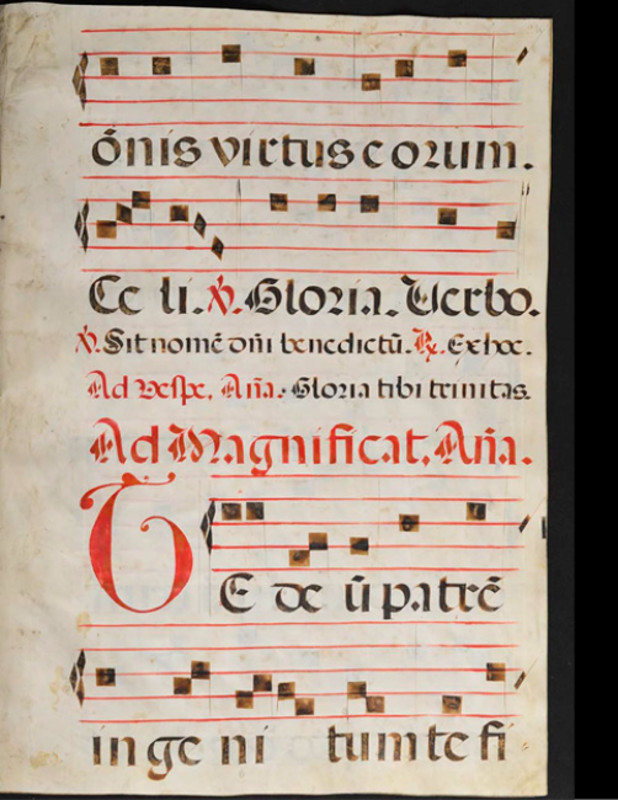 õnis virtus eorum.
Ce li. ℣. Gloria. Verbo.
℣. Sit nomē dñi benedictū. ℟. Ex hoc.
Ad Vespe. Aña. Gloria tibi trinitas.
Ad Magnificat, Aña.
TE de ū patrē
in ge ni tum te fi